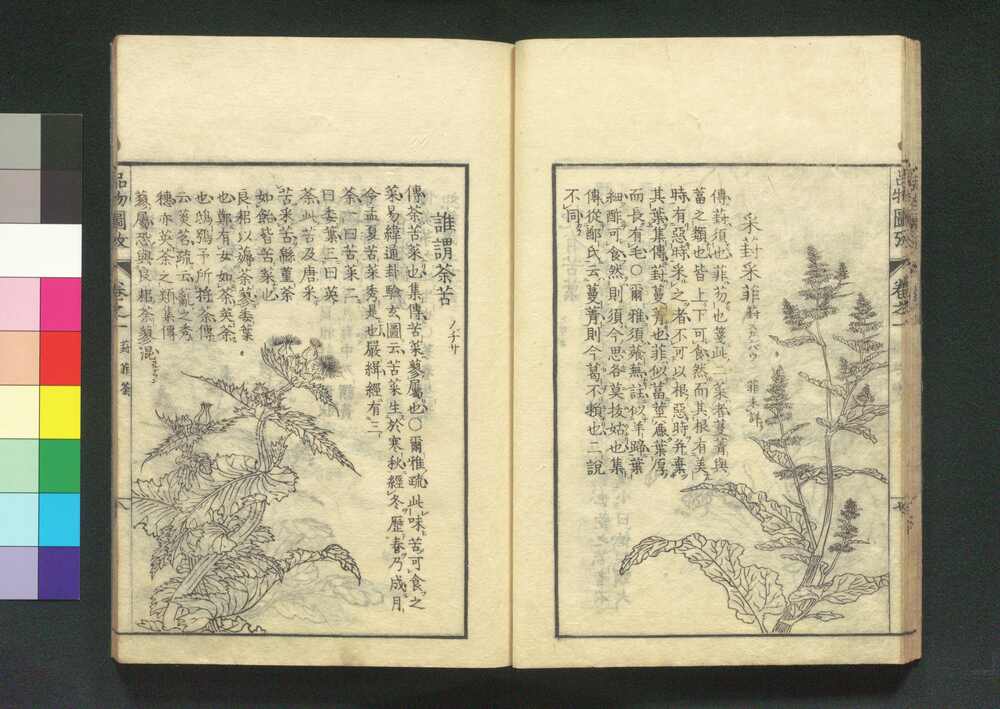 品物圖攷 卷之一
采葑采菲
菲未詳
傳葑須也菲芴也箋此二菜者蔓菁與
葍之類也皆上下可食然而其根有美
時有惡時采之者不可以根惡時并棄
其葉集傳葑蔓菁也菲似葍莖麤葉厚
而長有毛○爾雅須薞蕪註似羊蹄葉
細酢可食然則須今思各莫拔姑也集
傳從鄭氏云蔓菁則今葛不頼也二說
不同
誰謂荼苦
傳荼苦菜也集傳苦菜蓼屬也○爾雅疏此味苦可食之
菜易緯通卦驗玄圖云苦菜生於寒秋經冬歷春乃成月
令孟夏苦菜秀是也嚴緝經有三
荼一曰苦菜二
曰委葉三曰英
荼此苦及唐采
苦采苦緜菫荼
如飴皆苦菜也
良耜以薅荼蓼委葉
也鄭有女如荼英荼
也鴟鴞予所捋荼傳
云萑苕疏云薍之秀
穗亦英荼之類集傳
蓼屬恐與良耜荼蓼混
品物圖攷 卷之一 葑 菲 荼 八